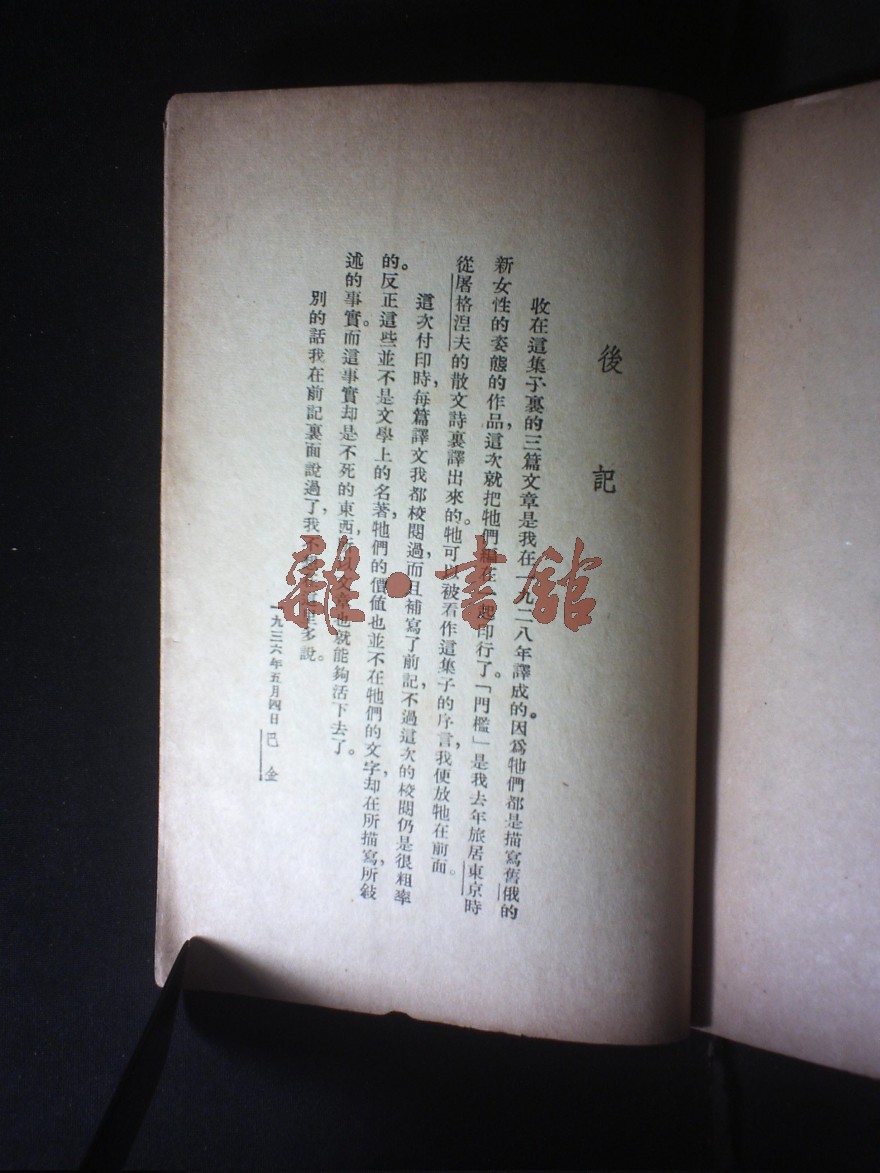 後記
收在這集子裏的三篇文章是我在一九二八年譯成的。因爲牠們都是描寫舊俄的
新女性的姿態的作品，這次就把牠們在一起印行了。「門檻」是我去年旅居東京時
從屠格涅夫的散文詩裏譯出來的。牠可以被看作這集子的序言，我便放牠在前面。
這次付印時，每篇譯文我都校閱過，而且補寫了前記，不過這次的校閱仍是很粗率
的。反正這些並不是文學上的名著，牠們的價值也並不在牠們的文字，却在所描寫，所敍
述的事實。而這事實却是不死的東西，以文章也就能夠活下去了。
別的話我在前記裏面說過了，我不多說。
一九三六年五月四日 巴金
雜·書館